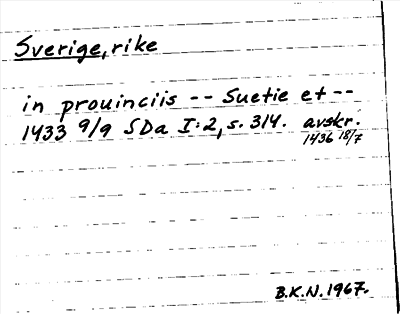 Sverige, rike
in prouinciis -- Suetie et --
1433 9/9 SDa I:2, s. 314. avskr.
1436 18/7
B.K.N. 1967.